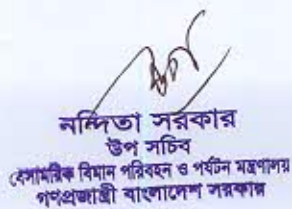 নন্দিতা সরকার
উপ সচিব
বেসামরিক বিমান পরিবহন ও পর্যটন মন্ত্রণালয়
গণপ্রজাতন্ত্রী বাংলাদেশ সরকার